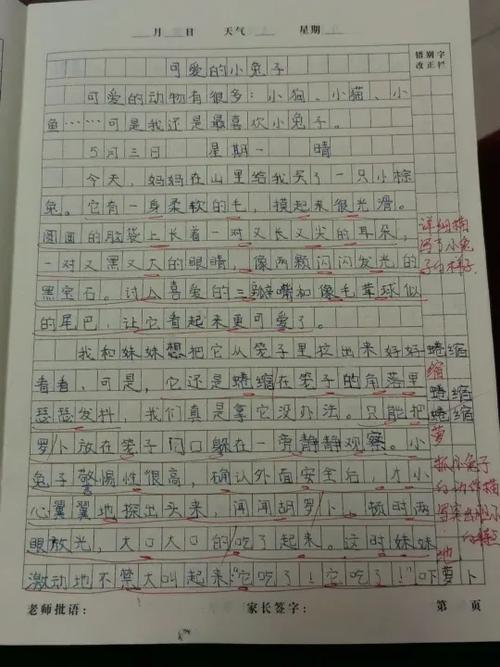 月 日 天气 星期
错别字
改正栏
可爱的小兔子
可爱的动物有很多：小狗、小猫、小
鱼……可是我还是最喜欢小兔子。
5月三日 星期一 晴
今天，妈妈在山里给我买了一只小棕
兔。它有一身柔软的毛，摸起来很光滑。
圆圆的脑袋上长着一对又长又尖的耳朵，
一对又黑又大的眼睛，像两颗闪闪发光的
黑宝石。讨人喜爱的三瓣嘴和像毛茸球似
的尾巴，让它看起来更可爱了。
详细描
写了小兔
子的样子
我和妹妹想把它从笼子里拉出来好好
看看，可是，它还是蜷缩在笼子的角落里
瑟瑟发抖，我们真是拿它没办法。只能把
罗卜放在笼子门口躲在一旁静静观察。小
兔子警惕性很高，确认外面安全后，才小
心翼翼地探出头来，闻闻胡罗卜，顿时两
眼放光，大口大口的吃了起来。这时妹妹
激动地不禁大叫起来“它吃了！它吃了！”吓萝卜
蜷缩
缩
蜷缩
蜷缩
萝
抓小兔子
的动作描
地
老师批语： 家长签字： 第 页